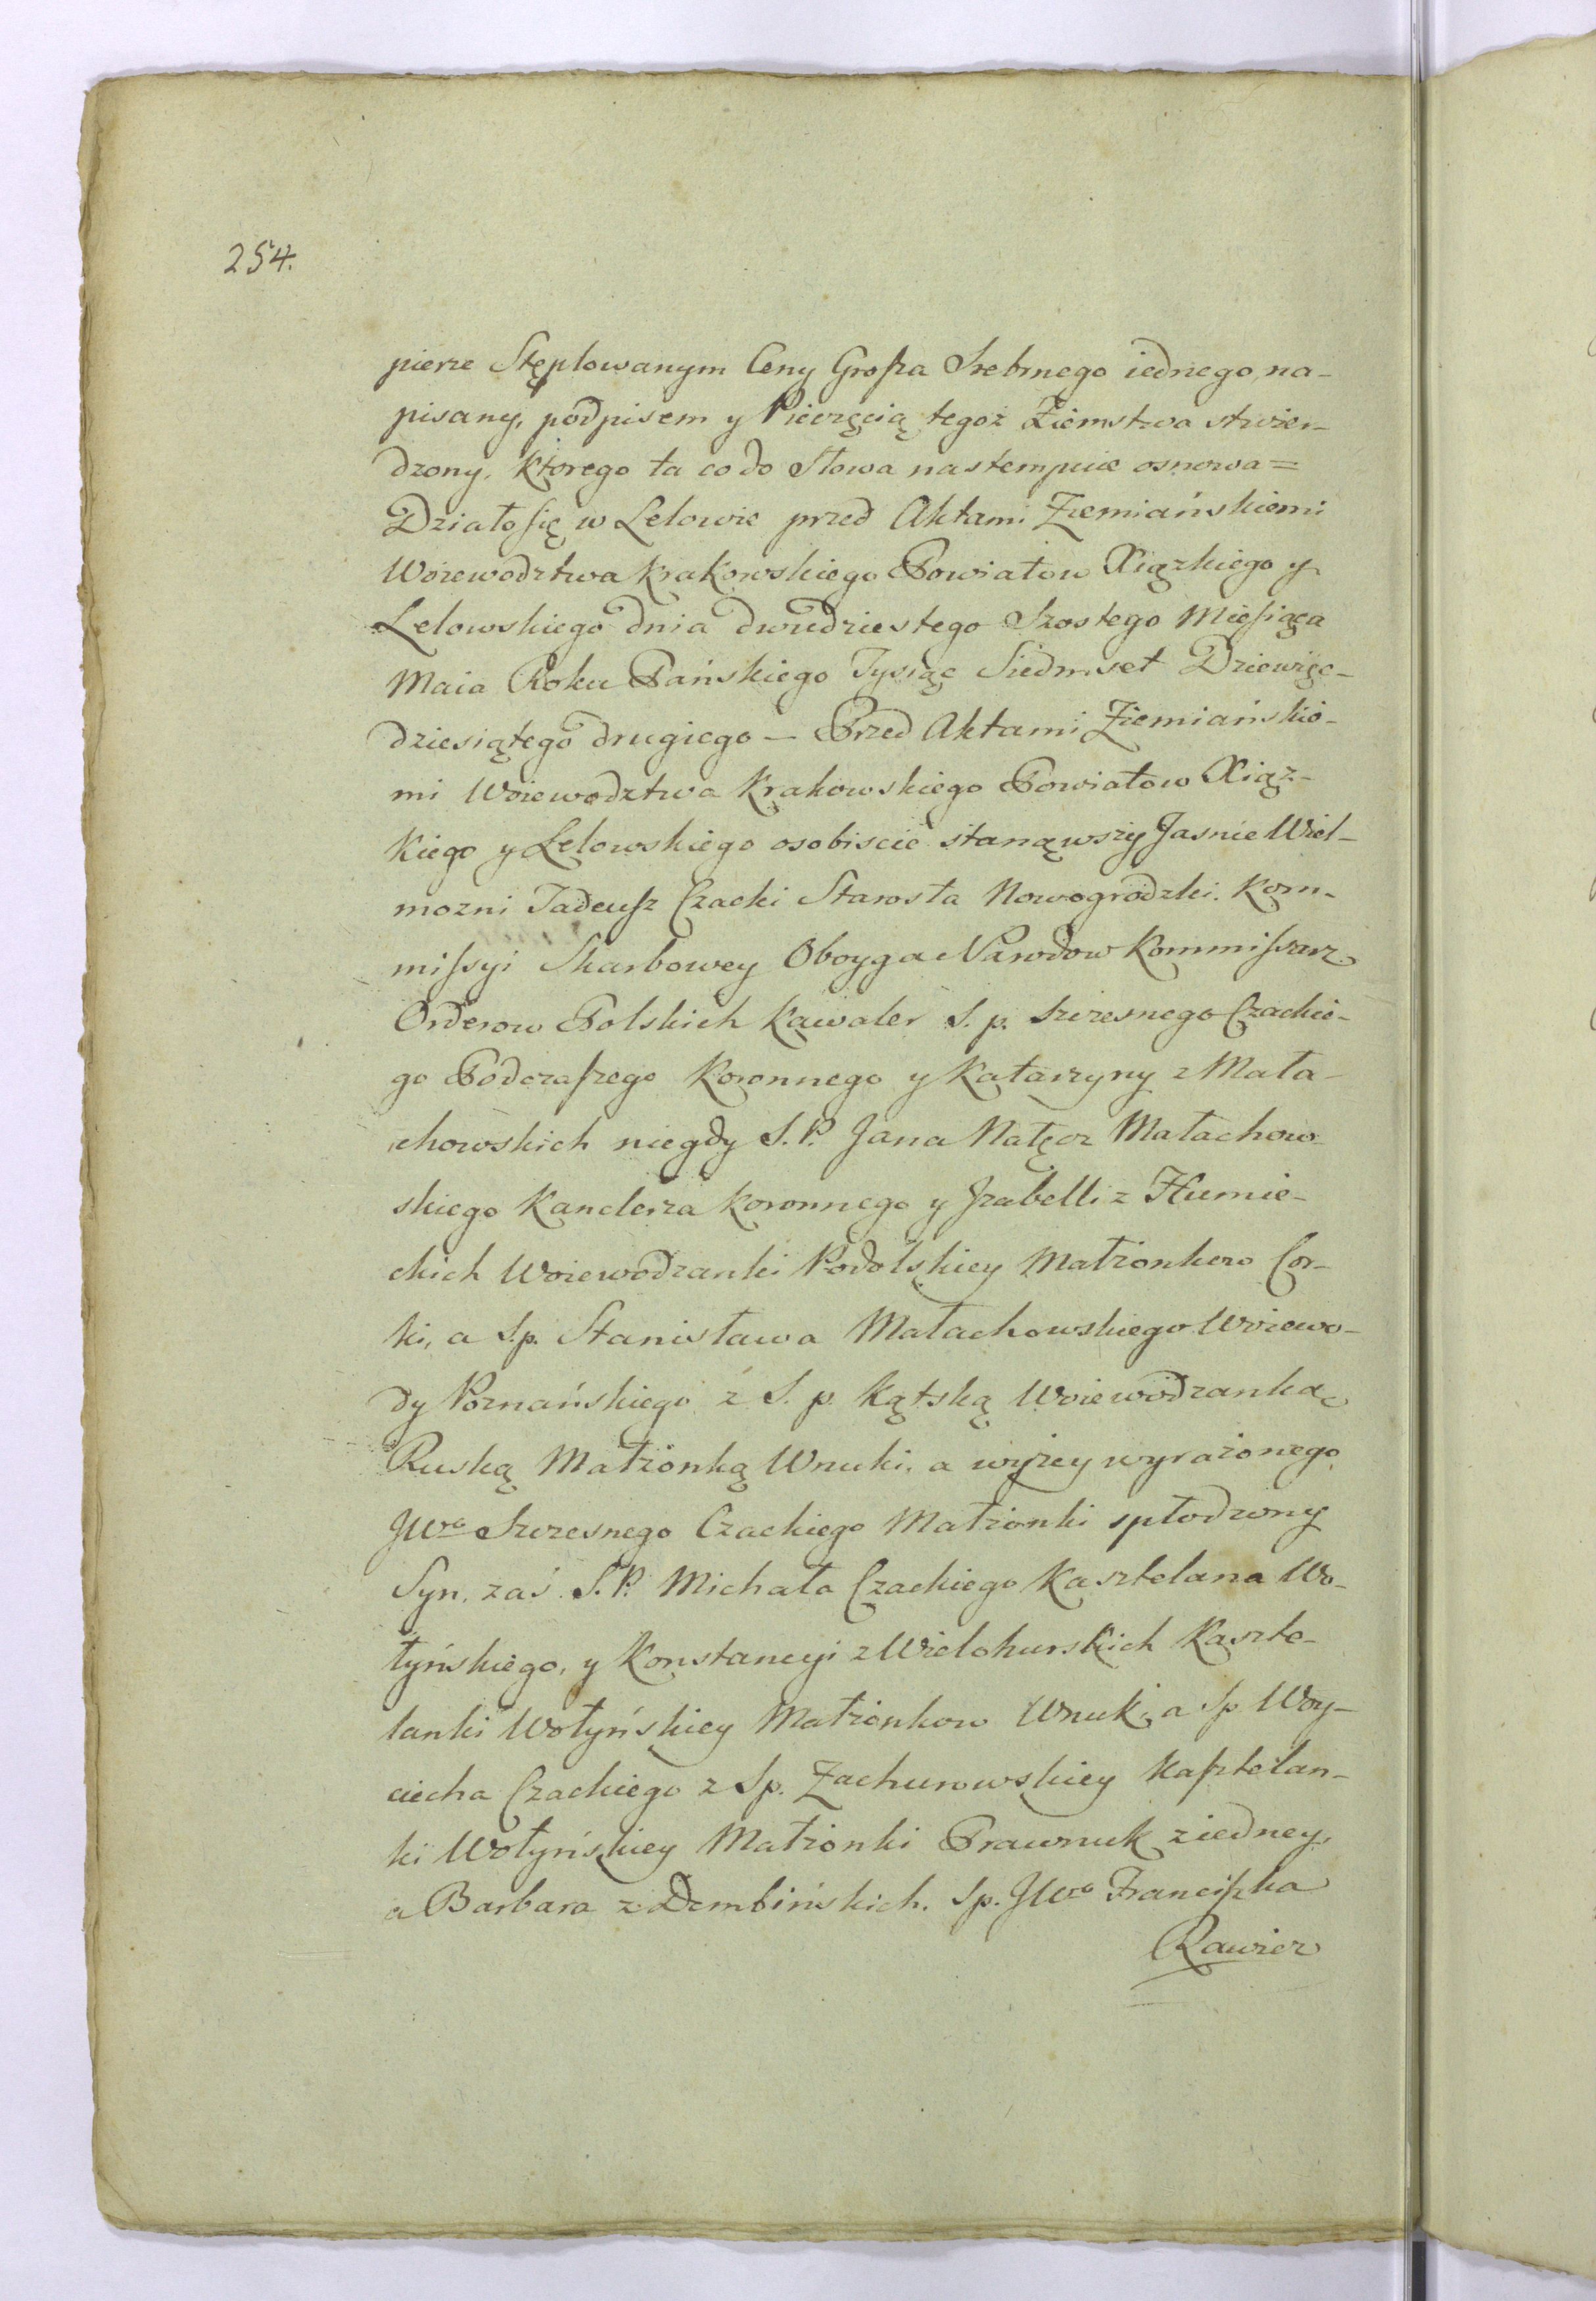 254.
pierze Stęplowanym Ceny Grosza Srebrnego iednego, na-
pisany, podpisem y Pieczęcią tegoż Ziemstwa stwier-
dzony, ktorego ta co do Słowa nastempuie osnowa =
Działo się w Lelowie przed Aktami Ziemiańskiemi
Woiewodztwa Krakowskiego Powiatow Xiązkiego y
Lelowskiego dnia dwudziestego Szostego Miesiąca
Maia Roku Pańskiego Tysiąc Siedmset Dziewięć-
dziesiątego drugiego — Przed Aktami Ziemiańskie-
mi Woiewodztwa Krakowskiego Powiatow Xiąz-
kiego y Lelowskiego osobiscie stanąwszy Jasnie Wiel-
mozni Tadeusz Czacki Starosta Nowogrodzki. Kom-
missyi Skarbowey Oboyga Narodow Kommissarz
Orderow Polskich Kawaler S. p. Szczesnego Czackie-
go Podczaszego Koronnego y Katarzyny z Mała-
chowskich niegdy S. P. Jana Nałęcz Małachow-
skiego Kanclerza Koronnego y Izabelli z Humie-
ckich Woiewodzanki Podolskiey Małżonkow Cor-
ki, a S.p. Stanisława Małachowskiego Woiewo-
dy Poznańskiego z S. p. Kątską Woiewodzanką
Ruską Małżonką Wnuki, a wyżey wyrażonego
JWo Szczesnego Czackiego Małżonki spłodzony
Syn, zaś S. P. Michała Czackiego Kasztelana Wo-
łyńskiego, y Konstancyi z Wielohurskich Kaszte-
lanki Wołyńskiey Małżonkow Wnuk, a Sp Woy-
ciecha Czackiego z Sp. Zachurowskiey Kasztelan-
ki Wołyńskiey Małżonki Prawnuk z iedney,
a Barbara z Dembińskich. Sp. JWo Franciszka
Rawicz